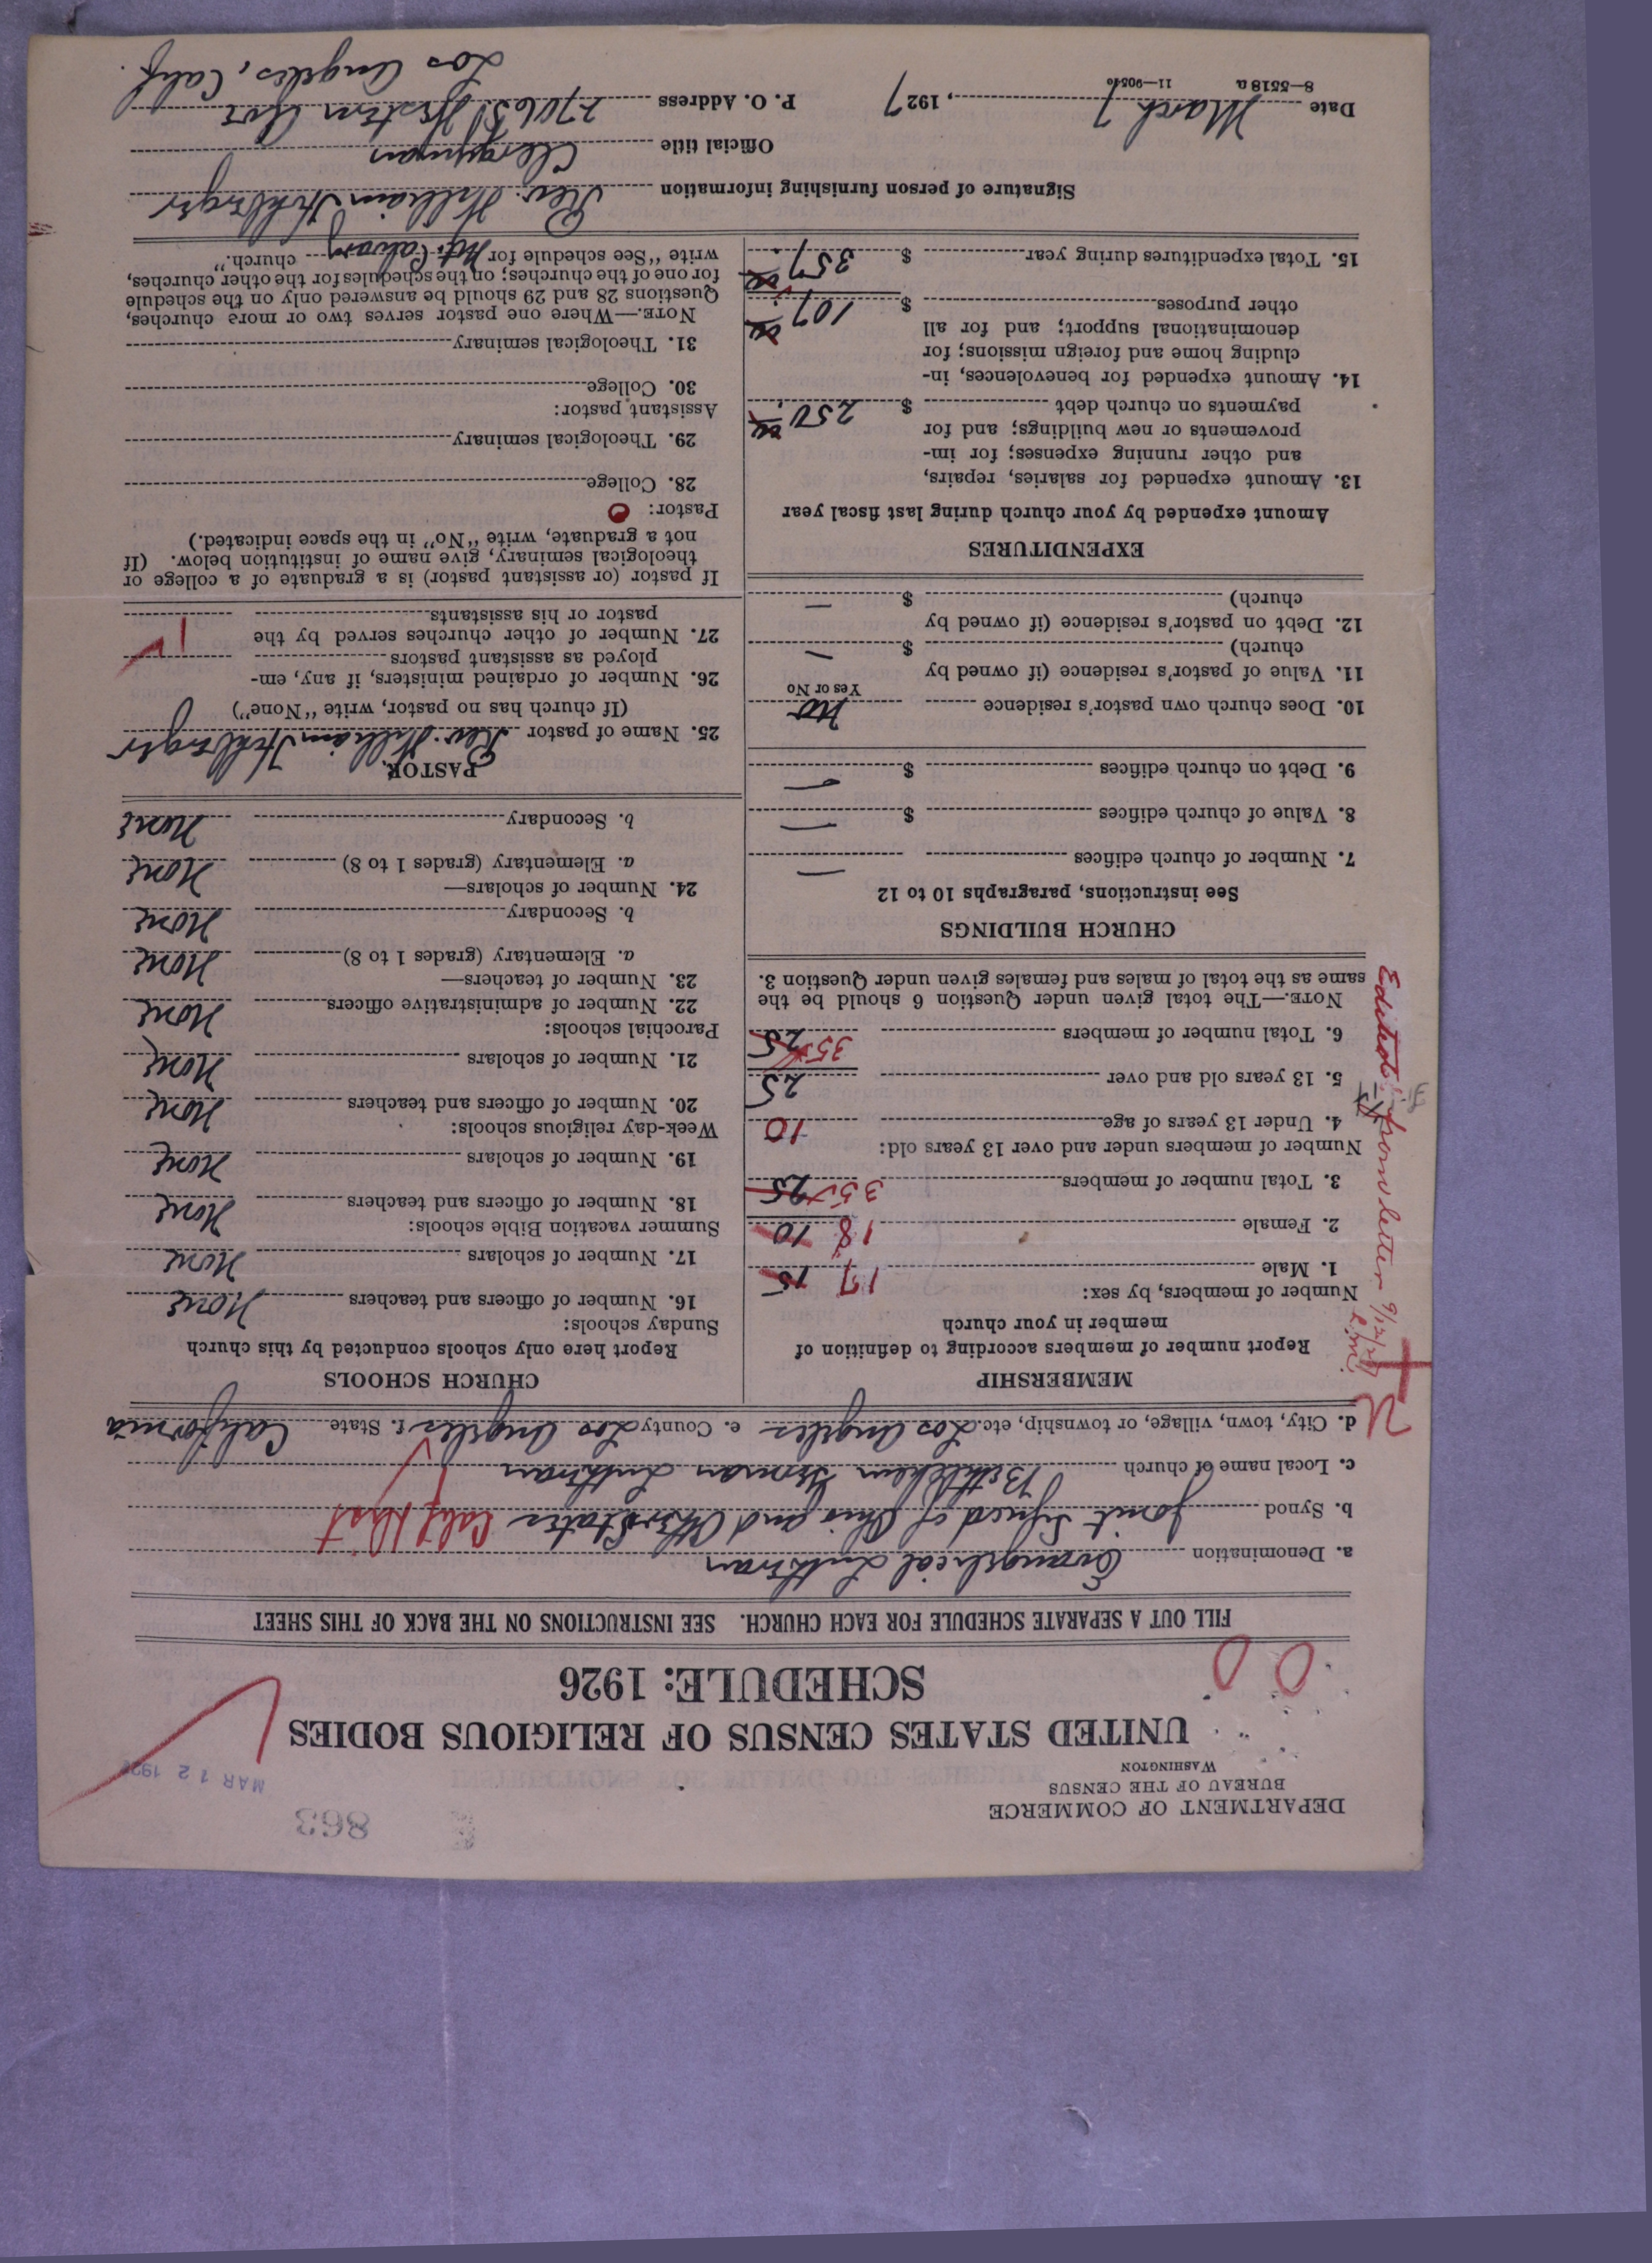 DEPARTMENT OF COMMERCE
BUREAU OF THE CENSUS
WASHINGTON
863
MAR 12 192
UNITED STATES CENSUS OF RELIGIOUS BODIES
SCHEDULE: 1926
FILL OUT A SEPARATE SCHEDULE FOR EACH CHURCH. SEE INSTRUCTIONS ON THE BACK OF THIS SHEET
a. Denomination Evangelical Lutheran
b. Synod Joint Synod of Ohio and Other States Calif Dist
c. Local name of church Bethlehem German Lutheran
d. City, town, village, or township, etc. Los Angeles e. County Los Angeles f. State California
MEMBERSHIP
Report number of members according to definition of
member in your church
Number of members, by sex:
1. Male 17 15
2. Female 18 10
3. Total number of members 35 25
Number of members under and over 13 years old:
4. Under 13 years of age 10
5. 13 years old and over 25
6. Total number of members 35 25
NOTE.—The total given under Question 6 should be the
same as the total of males and females given under Question 3.
Edited from letter 9/12/27
CHURCH BUILDINGS
See instructions, paragraphs 10 to 12
7. Number of church edifices —
8. Value of church edifices $ —
9. Debt on church edifices $ —
10. Does church own pastor's residence No
Yes or No
11. Value of pastor's residence (if owned by
church) $ —
12. Debt on pastor's residence (if owned by
church) $ —
EXPENDITURES
Amount expended by your church during last fiscal year
13. Amount expended for salaries, repairs,
and other running expenses; for im-
provements or new buildings; and for
payments on church debt $ 250
14. Amount expended for benevolences, in-
cluding home and foreign missions; for
denominational support; and for all
other purposes $ 107
15. Total expenditures during year $ 357
CHURCH SCHOOLS
Report here only schools conducted by this church
Sunday schools:
16. Number of officers and teachers None
17. Number of scholars None
Summer vacation Bible schools:
18. Number of officers and teachers None
19. Number of scholars None
Week-day religious schools:
20. Number of officers and teachers None
21. Number of scholars None
Parochial schools:
22. Number of administrative officers None
23. Number of teachers—
a. Elementary (grades 1 to 8) None
b. Secondary None
24. Number of scholars—
a. Elementary (grades 1 to 8) None
b. Secondary None
PASTOR
25. Name of pastor Rev. William
(If church has no pastor, write "None")
26. Number of ordained ministers, if any, em-
ployed as assistant pastors
27. Number of other churches served by the
pastor or his assistants 1
If pastor (or assistant pastor) is a graduate of a college or
theological seminary, give name of institution below. (If
not a graduate, write "No" in the space indicated.)
Pastor:
28. College
29. Theological seminary
Assistant pastor:
30. College
31. Theological seminary
NOTE.—Where one pastor serves two or more churches,
Questions 28 and 29 should be answered only on the schedule
for one of the churches; on the schedules for the other churches,
write "See schedule for Mt. Calvary church."
Signature of person furnishing information Rev. William
Official title Clergyman
Date March 7, 1927 P. O. Address 2706 S. Western Ave
Los Angeles, Calif.
8—5518 a 11—9051